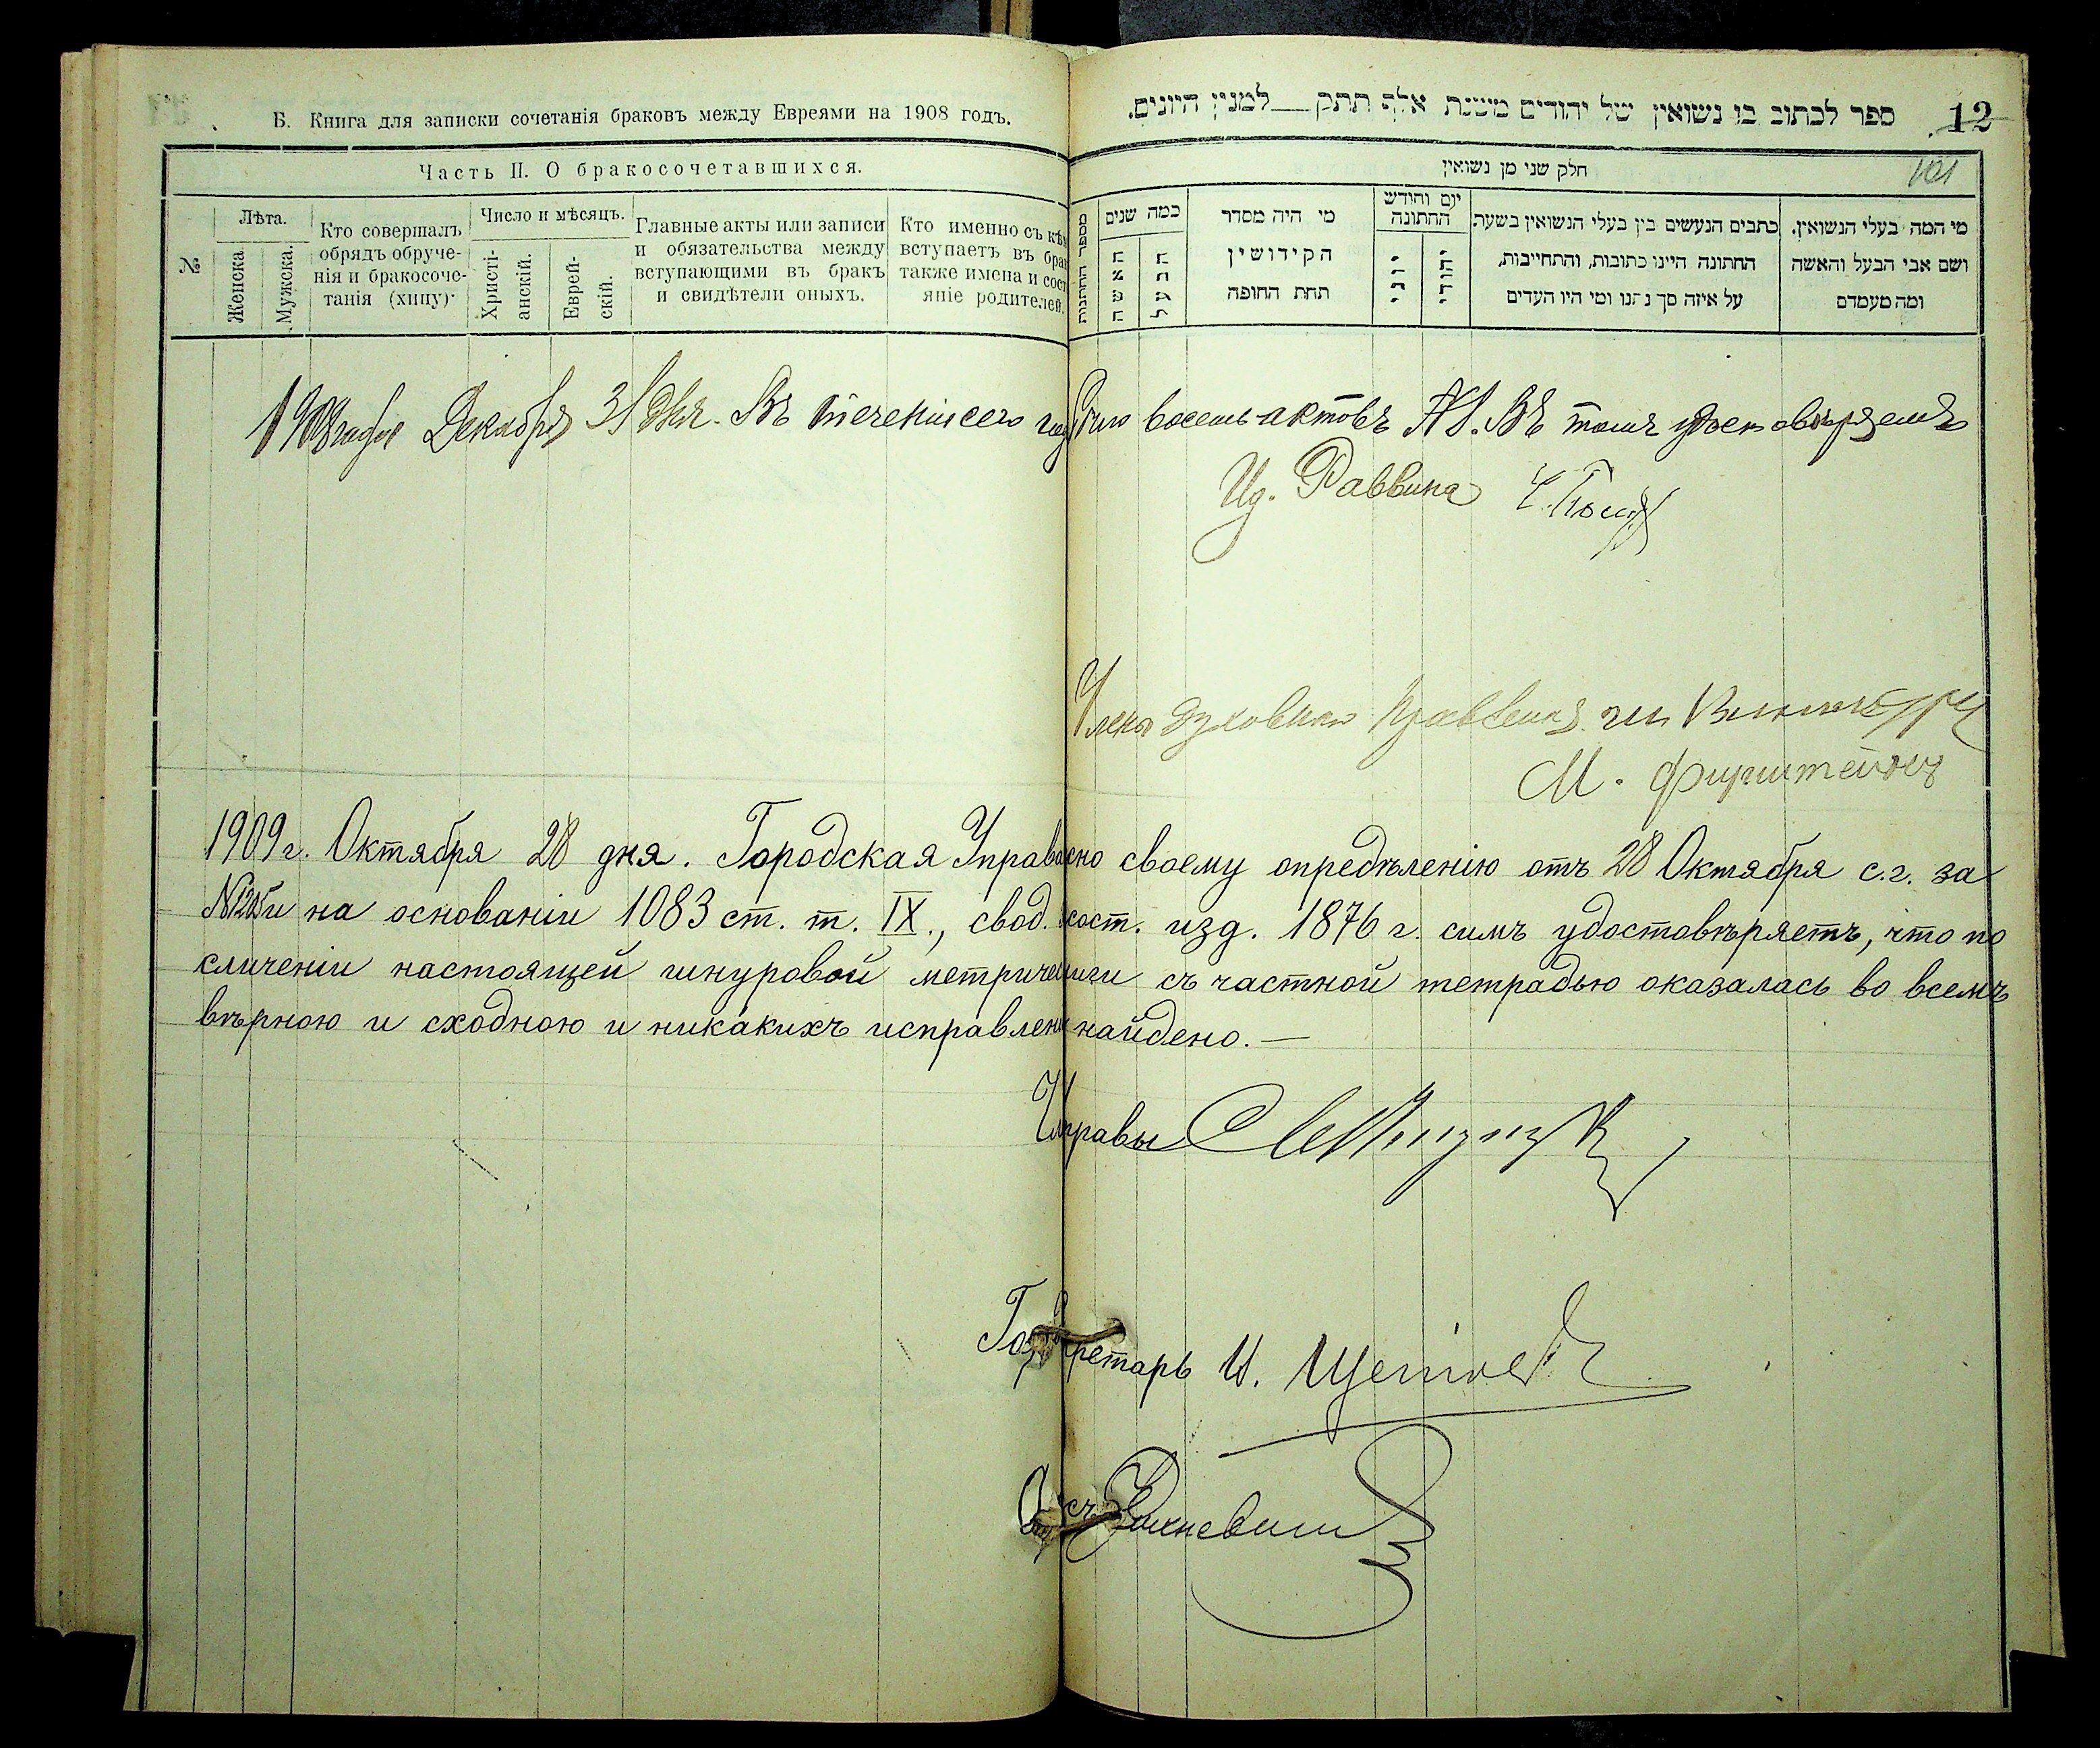 Б. Книга для записки сочетанія браковъ между Евреями на 1908 годъ.
Часть II. О бракосочетавшихся.
№
Лѣта.
Женска.
Мужска.
Кто совершалъ
обрядъ обруче-
нія и бракосоче-
танія (хипу)
Число и мѣсяцъ.
Христі-
анскій.
Еврей-
скій.
Главные акты или записи
и обязательства между
вступающими въ бракъ
и свидѣтели оныхъ.
Кто именно съ кѣ
вступаетъ въ бра
также имена и сост
яніе родителей.
12
ספר לכתוב בו נשואין של יהודים משנת אלף תתק למנין היונים.
101
חלק שני מן נשואין
מספר החתונות
כמה שנים
האשה
הבעל
מי היה מסדר
הקידושין
תחת החופה
יום וחודש
החתונה
יוני
יהודי
כתבים הנעשים בין בעלי הנשואין בשעת
החתונה היינו כתובות, והתחייבות,
על איזה סך נתנו ומי היו העדים
מי המה בעלי הנשואין.
ושם אבי הבעל והאשה
ומה מעמדם
1908 года Декабря 31 дня. Въ теченіи сего восемь актовъ №8. Въ томъ удостовѣряемъ
Ид. Раввина
Члены духовнаго правленія
М.
1909 г. Октября 28 дня. Городская Управа сно своему опредѣленію отъ 28 Октября с.г. за
и на основаніи 1083 ст. т. IX., свод. сост. изд. 1876 г. симъ удостовѣряетъ, что по
сличеніи настоящей шнуровой метриче ниги съ частной тетрадью оказалась во всемъ
вѣрною и сходною и никакихъ исправлен найдено. —
Управы
Го ретарь И.